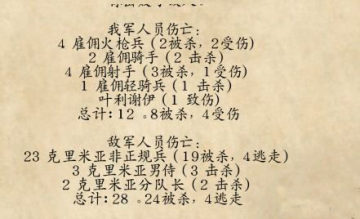 我军人员伤亡:
4 雇佣火枪兵 (2被杀, 2受伤)
2 雇佣骑手 (2 击杀)
4 雇佣射手 (3被杀, 1受伤)
1 雇佣轻骑兵 (1 击杀)
叶利谢伊 (1 致伤)
总计: 12 。8被杀, 4受伤
敌军人员伤亡:
23 克里米亚非正规兵 (19被杀, 4逃走)
3 克里米亚男侍 (3 击杀)
2 克里米亚分队长 (2 击杀)
总计: 28 。24被杀, 4逃走